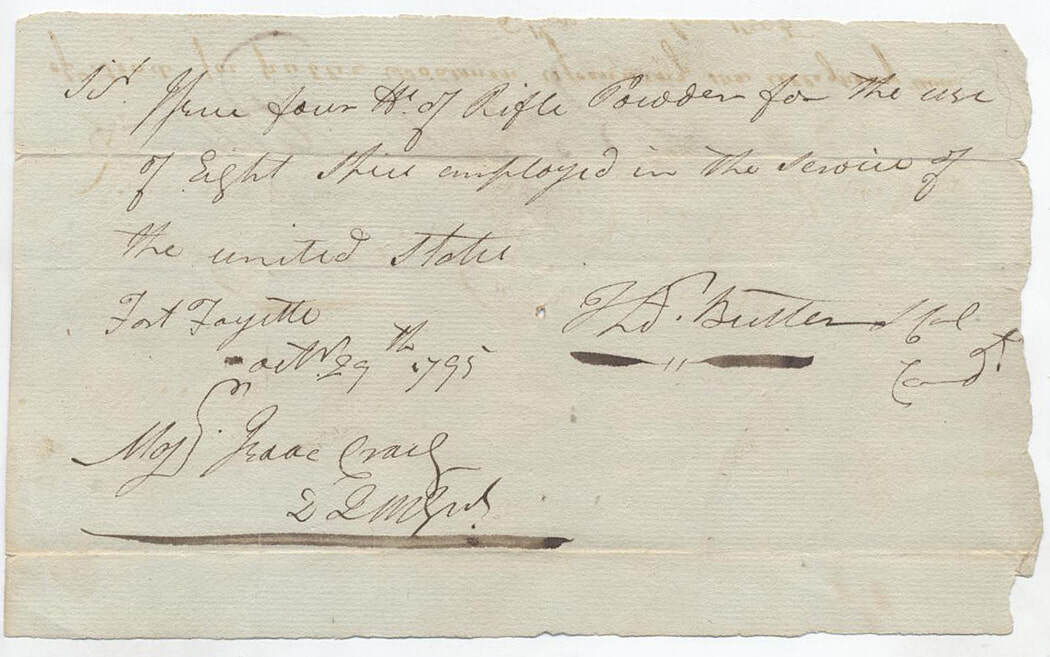 Sr. Issue four lbs. of Rifle Powder for the use
of Eight employed in the Service of
the united States
Fort Fayette
octr. 29th 1795
Thos. Butler
Comdt
Majr. Isaac Craig
D Q M Genl.